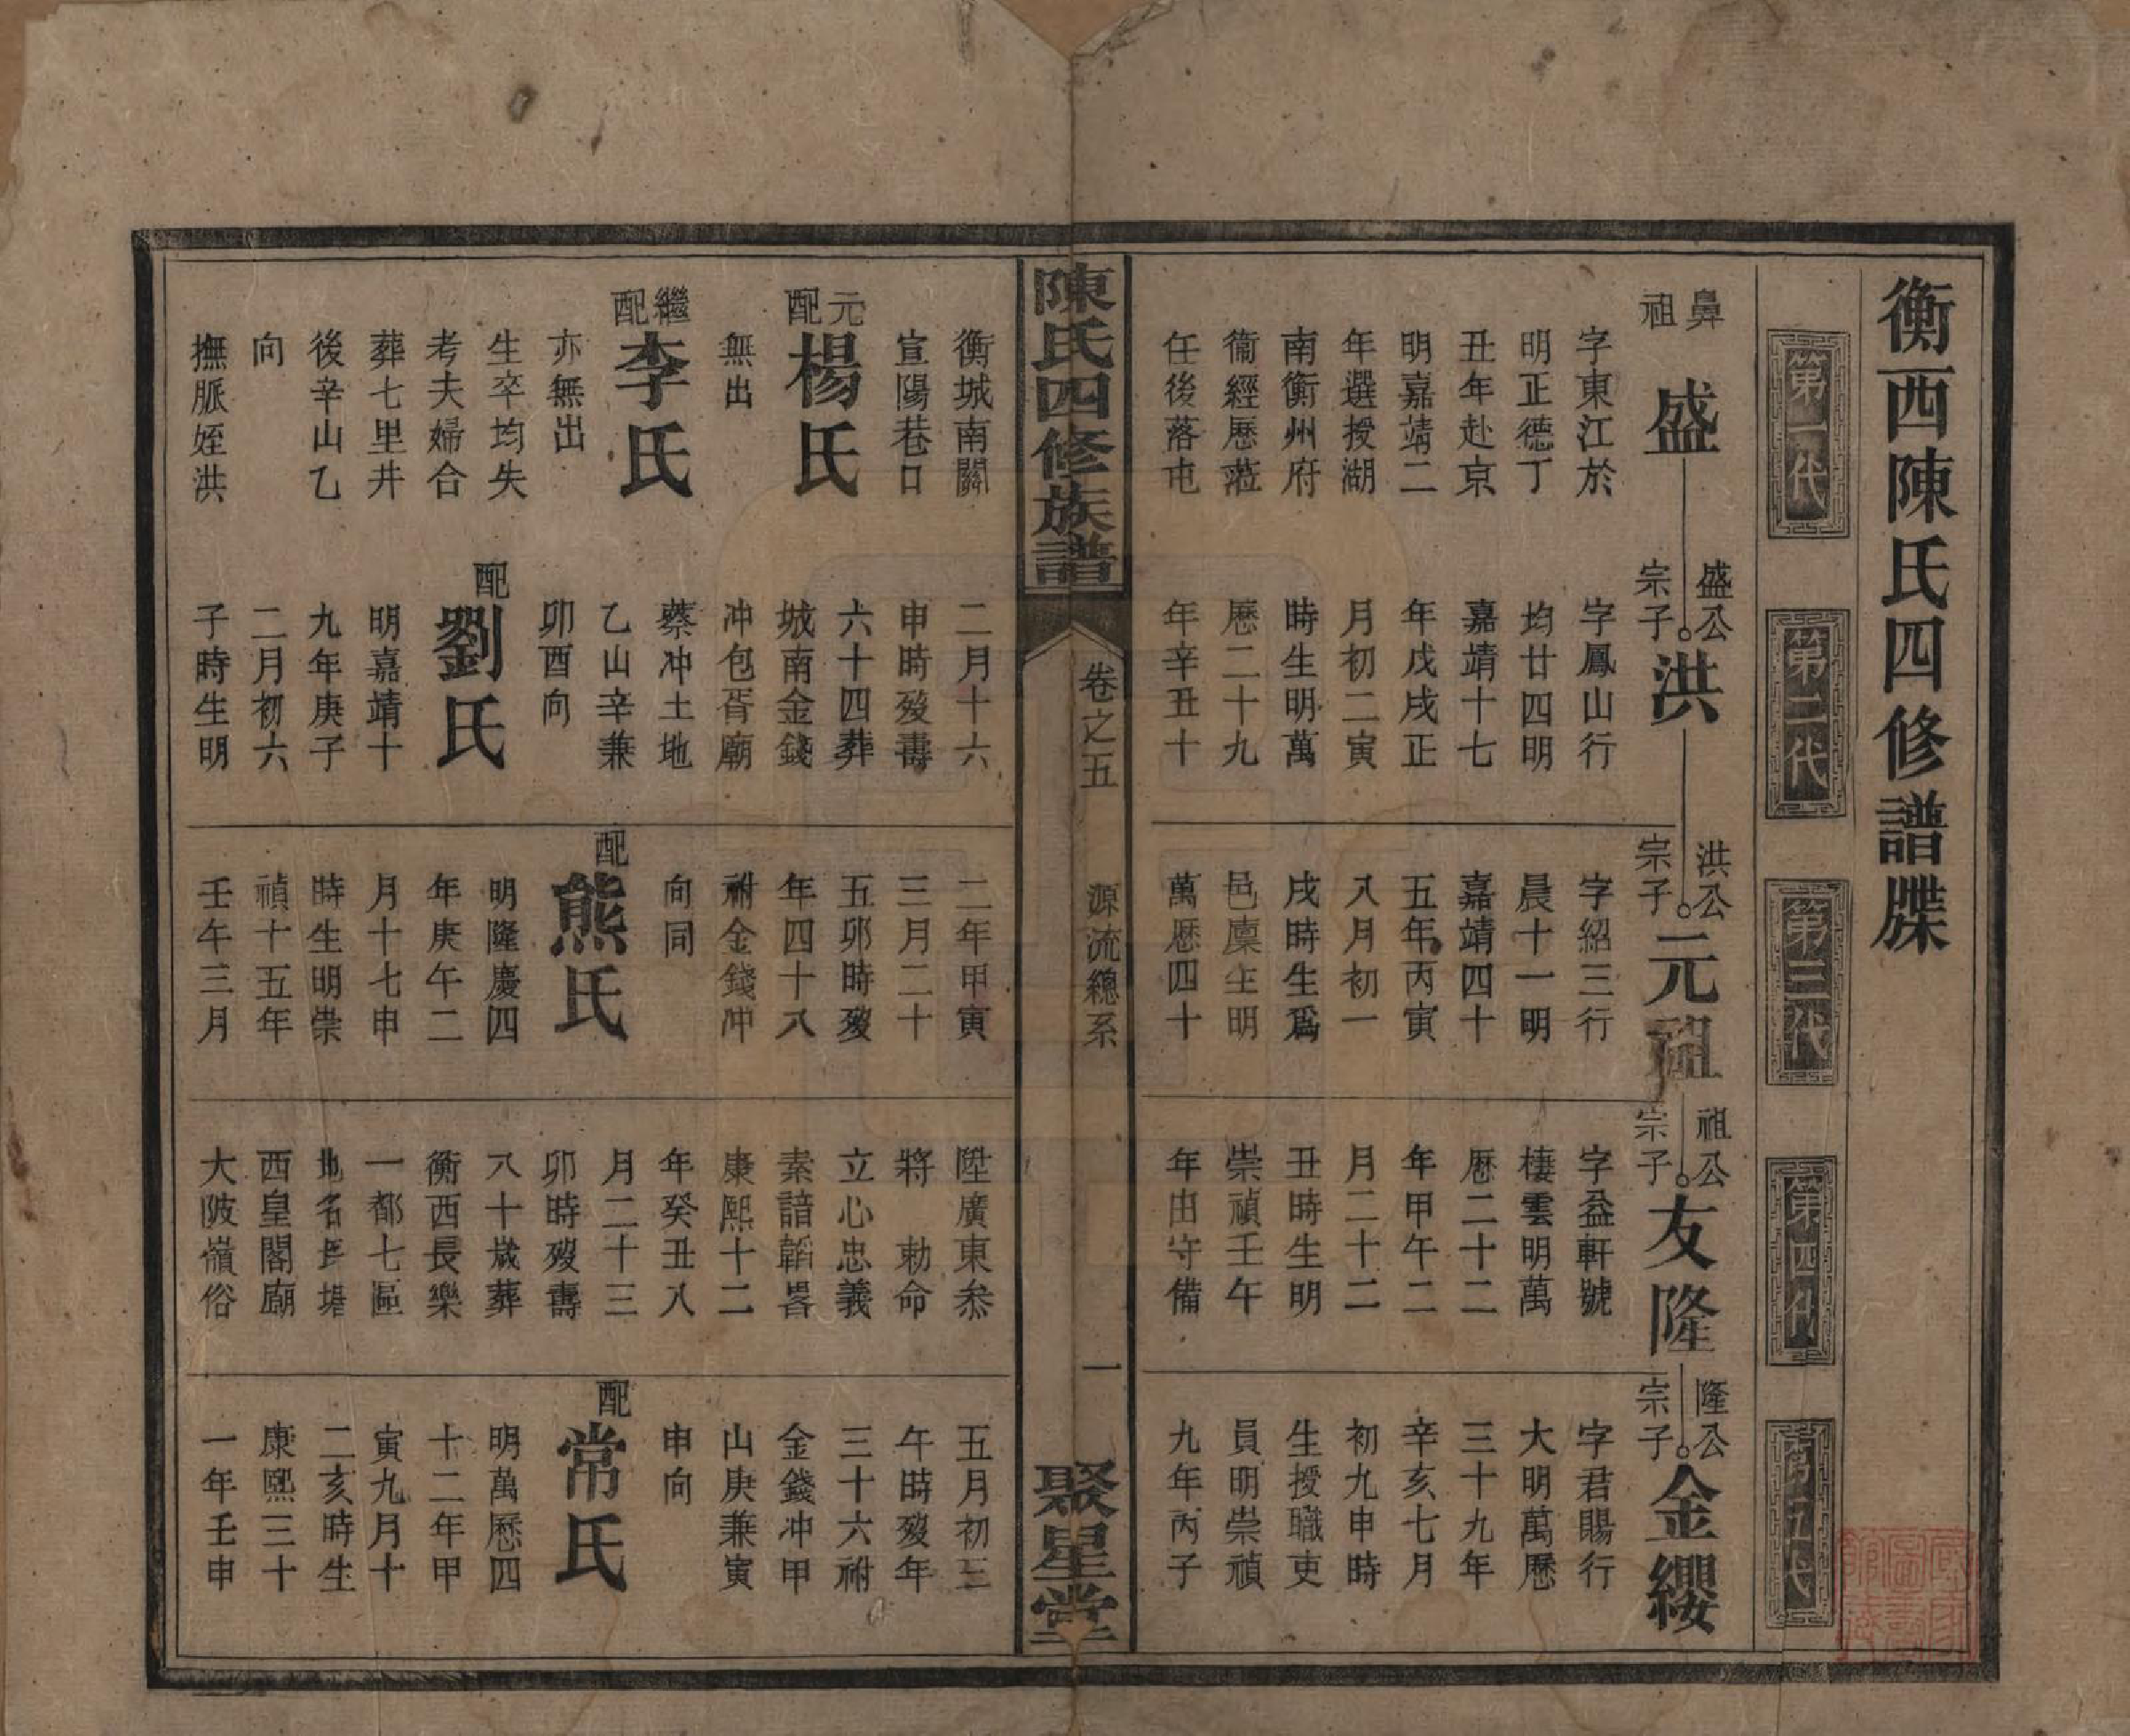 衡西陳氏四修譜牒
第一代
第二代
第三代
第四代
第五代
鼻祖
盛
字東江於
明正德丁
丑年赴京
明嘉靖二
年選授湖
南衡州府
衞經歷蒞
任後落屯
衡城南關
宣陽巷口
無出
元配
楊氏
繼配
李氏
亦無出
生卒均失
考夫婦合
葬七里井
後辛山乙
向
撫脈姪洪
盛公宗子
洪
字鳳山行
均廿四明
嘉靖十七
年戊戌正
月初二寅
時生明萬
歷二十九
年辛丑十
二月十六
申時歿壽
六十四葬
城南金錢
冲包胥廟
蔡冲土地
乙山辛兼
卯酉向
配
劉氏
明嘉靖十
九年庚子
二月初六
子時生明
洪公宗子
元祖
字紹三行
晨十一明
嘉靖四十
五年丙寅
八月初一
戌時生爲
邑廩生明
萬歷四十
二年甲寅
三月二十
五卯時歿
年四十八
祔金錢冲
向同
配
熊氏
明隆慶四
年庚午二
月十七申
時生明崇
禎十五年
壬午三月
祖公宗子
友隆
字益軒號
棲雲明萬
歷二十二
年甲午二
月二十二
丑時生明
崇禎壬午
年由守備
陞廣東叅
將 勅命
立心忠義
素諳韜畧
康熙十二
年癸丑八
月二十三
卯時歿壽
八十歲葬
衡西長樂
一都七區
地名塘
西皇閣廟
大陂嶺俗
隆公宗子
金纓
字君賜行
大明萬歷
三十九年
辛亥七月
初九申時
生授職吏
員明崇禎
九年丙子
五月初三
午時歿年
三十六祔
金錢冲甲
山庚兼寅
申向
配
常氏
明萬歷四
十二年甲
寅九月十
二亥時生
康熙三十
一年壬申
陳氏四修族譜
卷之五
源流總系
一
聚星堂